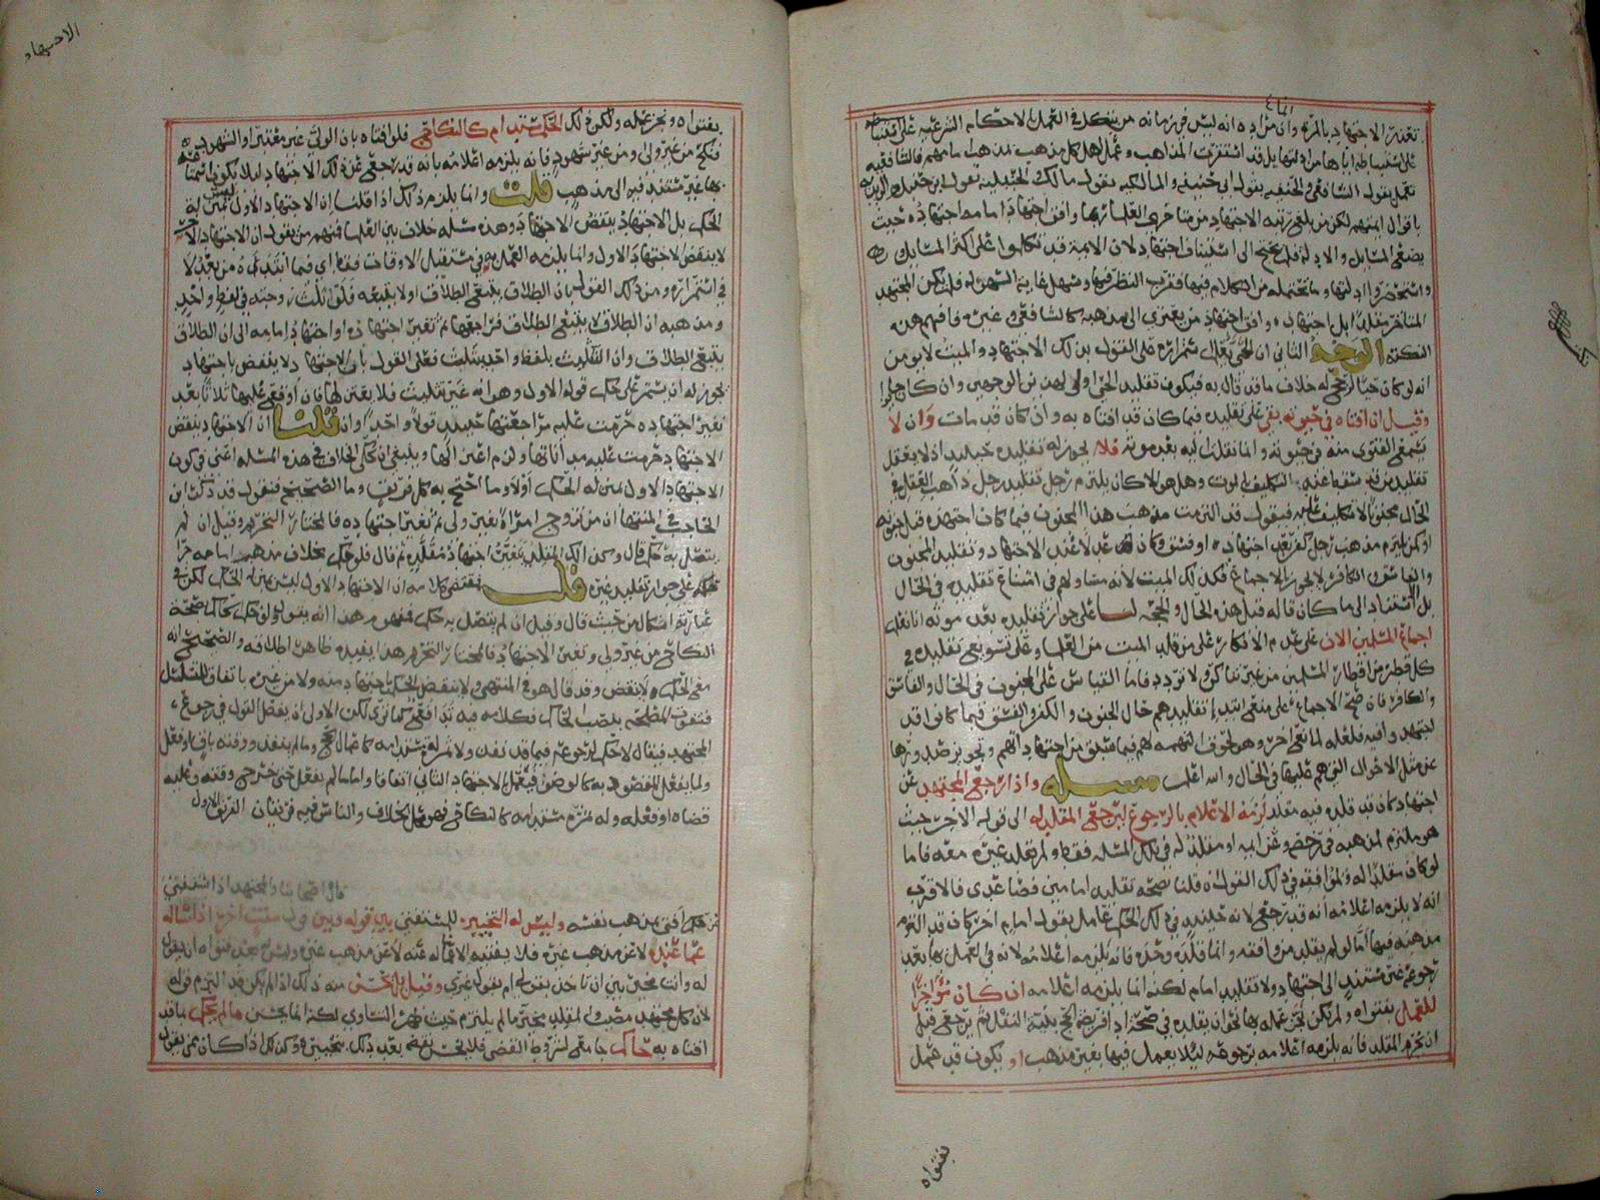 تعذر الاجتهاد بالمرة وان مراده انه ليس في زمانه من يتكل في العمل بالاحكام الشرعية على
استنباطه اياها من ادلتها بل قد استقرت المذاهب وعمل اهل كل مذهب بمذهب امامهم فالشافعية
تعمل بقول الشافعي والحنفيه بقول ابي حنيفة والمالكيه بقول مالك والحنبليه بقول ابن حنبل
باقوال ايمتهم لكن من بلغ رتبه الاجتهاد من متاخري العلما وافق اجتهاد امامه اجتهاده حيث
المسايل والادلة فلم يحتج الى استيناف اجتهاد لان الايمة قد تكلموا على اكثر المسايل
واستحضروا ادلتها وما تحتمله من الكلام فيها فقرب النظر فيها وسهل غاية السهوله فلم يكن المجتهد
المتاخر مقلدا بل اجتهاده وافق اجتهاد من يعتزي الى مذهبه كالشافعي وغيره فافهم هذه
النكتة الوجه الثاني ان الحي استمراره على القول بذلك الاجتهاد والميت لا يومن
انه لو كان حيا لرجح له خلاف ما قد قال به فيكون تقليد الحي اولى لهذين الوجهين وان كان
وقيل ان افتاه في حيوته بقي على تقليده فيما كان قد افتاه به وان كان قد مات وان لا
يسمع الفتوى منه في حيوته وانما نقلت اليه بعد موته فلا يجوز له تقليده حينئذ اذ لا يعقل
تقليد من قد سقط عنه التكليف بالموت وهل هو الا كان يلتزم رجل تقليد رجل ذاهب العقل في
الحال مجنون لا تكليف عليه فيقول قد التزمت مذهب هذا المجنون فيما كان اجتهده قبل جنونه
والفاسق والكافر لا يجوز بالاجماع فكذلك الميت لانه مساو لهم في امتناع تقليده في الحال
بل استناد الى ما كان قاله قبل هذه الحال والحجه لنا على جواز تقليده بعد موته انا نقل
اجماع المسلمين الان على عدم الانكار على من قلد الميت من العلما وعلى تسويغ تقليده في
كل قطر من اقطار المسلمين من غير تناكر ولا تردد فاما القياس على المجنون في الحال والفاسق
والكافر فان صح الاجماع على منع ابتداء تقليدهم حال الجنون والكفر والفسق فيما كانوا قد
عن مثل الاحوال التي هم عليها في الحال والله اعلم مسئلة واذا رجع المجتهد عن
اجتهاد كان قد قلده فيه مقلد لزمه الاعلام بالرجوع ليرجع المقلد له الى قوله الاخر حيث
هو ملتزم لمذهبه في رخصه وعزايمه او مقلد له في تلك المسئله فقط ولم يقلد غيره معه فاما
لو كان مقلدا له ولموافقه في ذلك القول قلنا بصحه تقليد امامين فصاعدا فالاقرب
انه لا يلزمه اعلامه انه قد رجع لانه حينئذ في ذلك الحكم عامل بقول امام اخر كان قد التزم
مذهبه فيها اما لو لم يقلد من وافقه وانما قلده وحده فانه يلزمه اعلامه لانه في العمل بها بعد
رجوعه غير مستند الى اجتهاد ولا تقليد امام لكنه انما يلزمه اعلامه ان كان مؤخرا
للعمل بفتواه ولم يكن قد عمله بها نحو ان يقلده في صحة اداء فريضة الحج ثم يرجع قبل
ان يحرم المقلد فانه يلزمه اعلامه برجوعه لئلا يعمل فيها بغير مذهب او يكون قد عمل
بفتواه
الاجتهاد
بفتواه ونحر عمله ولكن ذلك الحكم مستدام كالنكاح فلو افتاه بان الولي غير معتبر او الشهود
فنكح من غير ولي ومن غير شهود فانه يلزمه اعلامه بانه قد رجع عن ذلك الاجتهاد لئلا يكون
بها غير مستند فيه الى مذهب قلت وانما يلزم ذلك اذا قلنا ان الاجتهاد الاول ليس بمنزلة
الحكم بل الاجتهاد ينقض الاجتهاد وهذه مسئله خلاف بين العلما فمنهم من يقول ان الاجتهاد
لا ينقض الاجتهاد الاول وانما يلزمه العمل به في مستقبل الاوقات فقط اي فيما ابتداه من بعد لا
في استمراره ومن ذلك القول بان الطلاق يتبع الطلاق او لا يتبعه فلو ثلث زوجته في لفظ واحد
ومذهبه ان الطلاق لا يتبع الطلاق فراجعها ثم تغير اجتهاده او اجتهاد امامه الى ان الطلاق
يتبع الطلاق وان التثليث بلفظ واحد تثليث فعلى القول بان الاجتهاد لا ينقض باجتهاد
يجوز له ان يستمر على حكم قوله الاول وهو انه غير تثليث فلا يعتزلها فان اوقع عليها ثلاثا بعد
تغير اجتهاده حرمت عليه مراجعتها حينئذ قولا واحدا وان قلنا ان الاجتهاد ينقض
الاجتهاد حرمت عليه ولزم اعتزالها وينبغي ان نحكي الخلاف في هذه المسئله اعني في كون
الاجتهاد الاول بمنزلة الحكم اولا وما احتج به كل فريق وما الصحيح فنقول قد ذكر ابن
الحاجب في المنتهى ان من تزوج امراة بغير ولي ثم تغير اجتهاده فالمختار التحريم وقيل ان لم
يتصل به حكم قال وكذلك المقلد بتغير اجتهاد مقلده ثم قال فلو حكم بخلاف مذهب امامه جرا
على جواز تقليد غيره قلت فمقتضى كلامه ان الاجتهاد الاول ليس بمنزلة الحكم لكن في
عبارته اشكال من حيث قال وقيل ان لم يتصل به حكم فمفهوم هذا انه يقول ولو حكم حاكم بصحة
النكاح من غير ولي وتغير الاجتهاد فالمختار التحريم هذا يفيده ظاهر اطلاقه والصحيح انه
مع الحكم لا ينقض وقد قال هو في المنتهى ولا ينقض الحكم باجتهاد منه ولا من غيره باتفاق للتسلسل
فتفوت المصلحه بنصب الحاكم فكلامه فيه تدافع كما ترى لكن الاولى ان يفصل القول في رجوع
المجتهد فيقال لا حكم لرجوعه فيما قد نفذ ولا ثمرة مستدامه كاعمال الحج وما لم ينفذ ووقته باق او فعل
ولما يفعل المقصود به كالوضوء فيعمل بالاجتهاد الثاني اتفاقا واما ما لم يفعل حتى خرج وقته وعليه
قضاه او فعله وله ثمرة مستدامه كالنكاح فهو محل الخلاف والناس فيه فريقان الفريق الاول
قال اصحابنا والمجتهد اذا استفتي
عن حكم افتى بمذهب نفسه وليس له التخيير للمستفتي بين قوله وبين قول مفت اخر اذا ساله
عما عنده لا عن مذهب غيره فلا يفتيه الا بما ساله عنه لا عن مذهب غيره وليس بعد فتواه ان يقول
له وانت مخير بين ان تاخذ بقولي ام بقول غيري وقيل بل يحسن منه ذلك اذا لم يكن قد التزم قوله
لان كل مجتهد مصيب والمقلد مخير ما لم يلتزم حيث ظهر التساوي لكنه انما يحسن ما لم يحكم بما قد
افتاه به حاكم جامع لشروط القضى فلا يحسن تخييره بعد ذلك وكذلك اذا كان ممن يقول